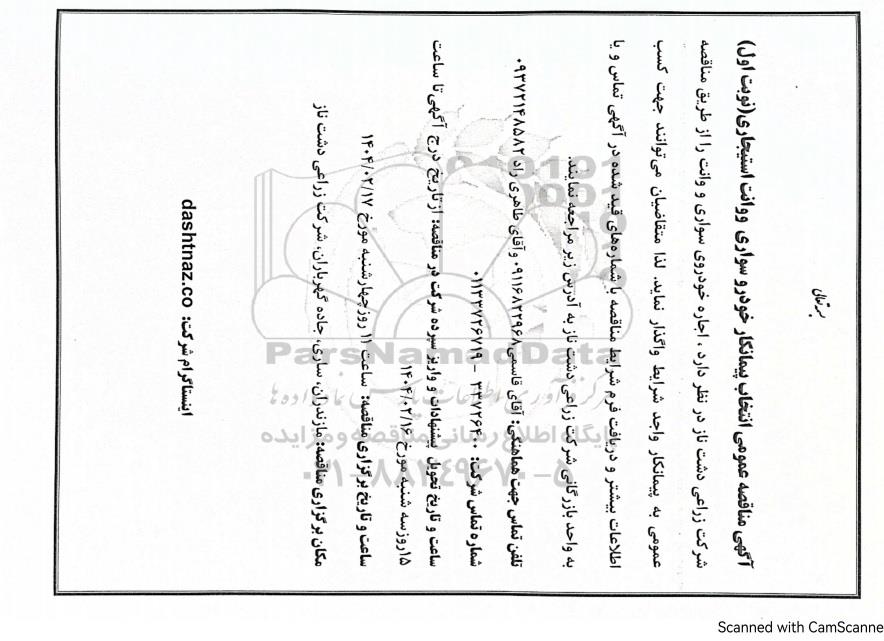 بسمه تعالی
آگهی مناقصه عمومی انتخاب پیمانکار خودرو سواری ووانت استیجاری(نوبت اول)
شرکت زراعی دشت ناز در نظر دارد ، اجاره خودروی سواری و وانت را از طریق مناقصه
عمومی به پیمانکار واجد شرایط واگذار نماید. لذا متقاضیان می‌توانند جهت کسب
اطلاعات بیشتر و دریافت فرم شرایط مناقصه با شماره‌های قید شده در آگهی تماس و یا
به واحد بازرگانی شرکت زراعی دشت ناز به آدرس زیر مراجعه نمایند.
تلفن تماس جهت هماهنگی: آقای قاسمی۰۹۱۱۶۸۳۲۹۶۸ وآقای طاهری راد ۰۹۳۷۲۱۴۸۵۸۲
شماره تماس شرکت: ۳۳۷۲۶۴۰۰ – ۰۱۱۳۳۷۲۶۷۱۹
ساعت و تاریخ تحویل پیشنهادات و واریز سپرده شرکت در مناقصه: ازتاریخ درج آگهی تا ساعت
۱۵روزسه شنبه مورخ ۱۴۰۴/۰۲/۱۶
ساعت و تاریخ برگزاری مناقصه: ساعت ۱۱ روزچهارشنبه مورخ ۱۴۰۴/۰۲/۱۷
مکان برگزاری مناقصه: مازندران، ساری، جاده گهرباران، شرکت زراعی دشت ناز
اینستاگرام شرکت: dashtnaz.co
ParsNamadData
پایگاه اطلاع رسانی مناقصه و مزایده
۰۲۱-۸۸۳۴۹۶۷۰-۵
Scanned with CamScanne